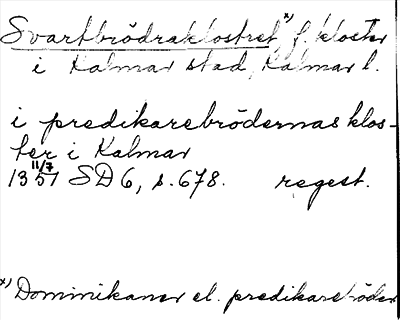 Svartbrödraklostret x), f. kloster
i Kalmar stad, Kalmar l.
i predikarebrödernas klos-
ter i Kalmar
1351 11/7 SD 6, s. 678. regest.
x) Dominikaner el. predikarebröder